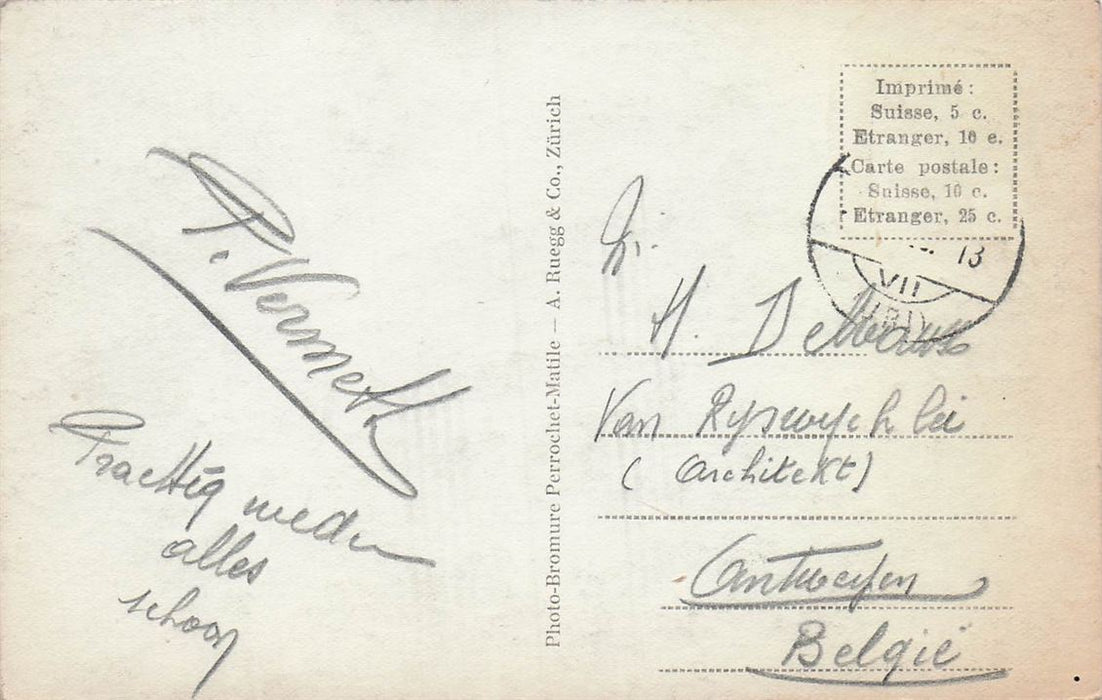 P. Vermeth
Prachtig weder
alles
schoon
Photo-Bromure Perrochet-Matile — A. Ruegg & Co., Zürich
Imprimé:
Suisse, 5 c.
Etranger, 10 c.
Carte postale:
Suisse, 10 c.
Etranger, 25 c.
13
VII
H.
Van Ryswyck lei
(Architekt)
Antwerpen
België